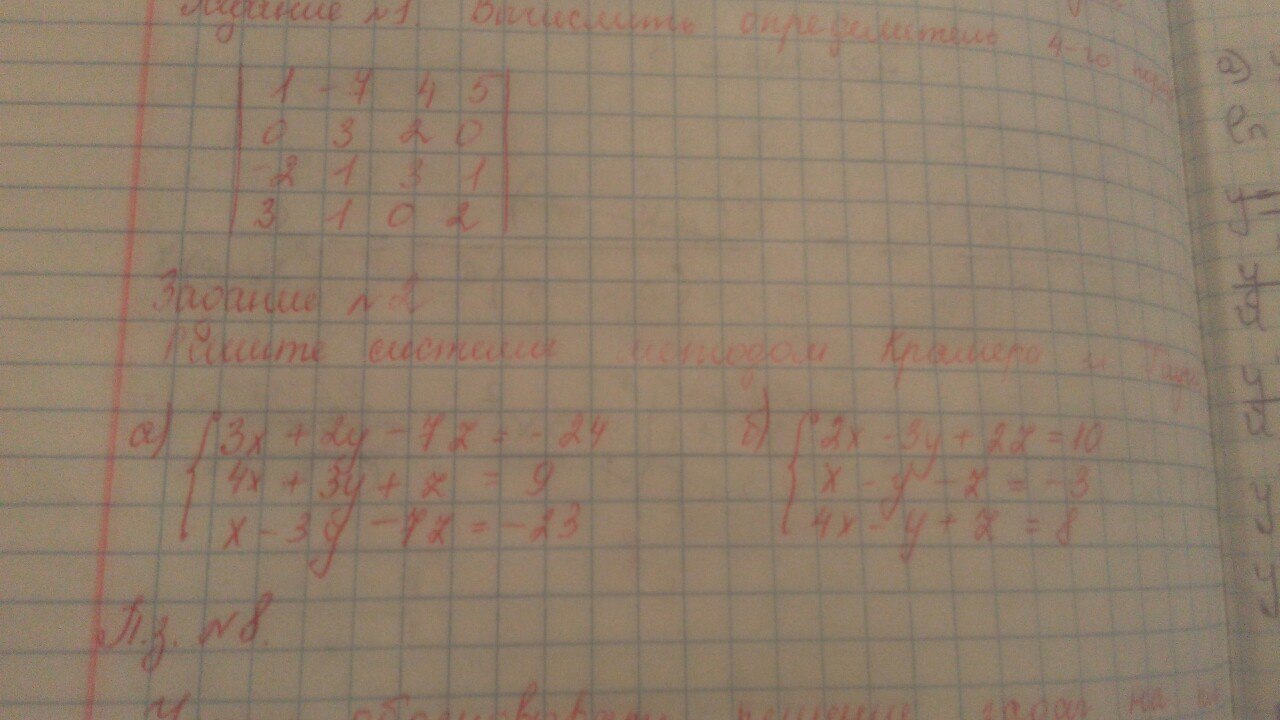 Задание №1 Вычислить определитель 4-го
1 -7 4 5
0 3 2 0
-2 1 3 1
3 1 0 2
Задание №2
Решите системы методом Крамера и
а) 3x + 2y - 7z = -24
4x + 3y + z = 9
x - 3y - 7z = -23
б) 2x - 3y + 2z = 10
x - y - z = -3
4x - y + z = 8
П.з. №8.
решение задач на
а)